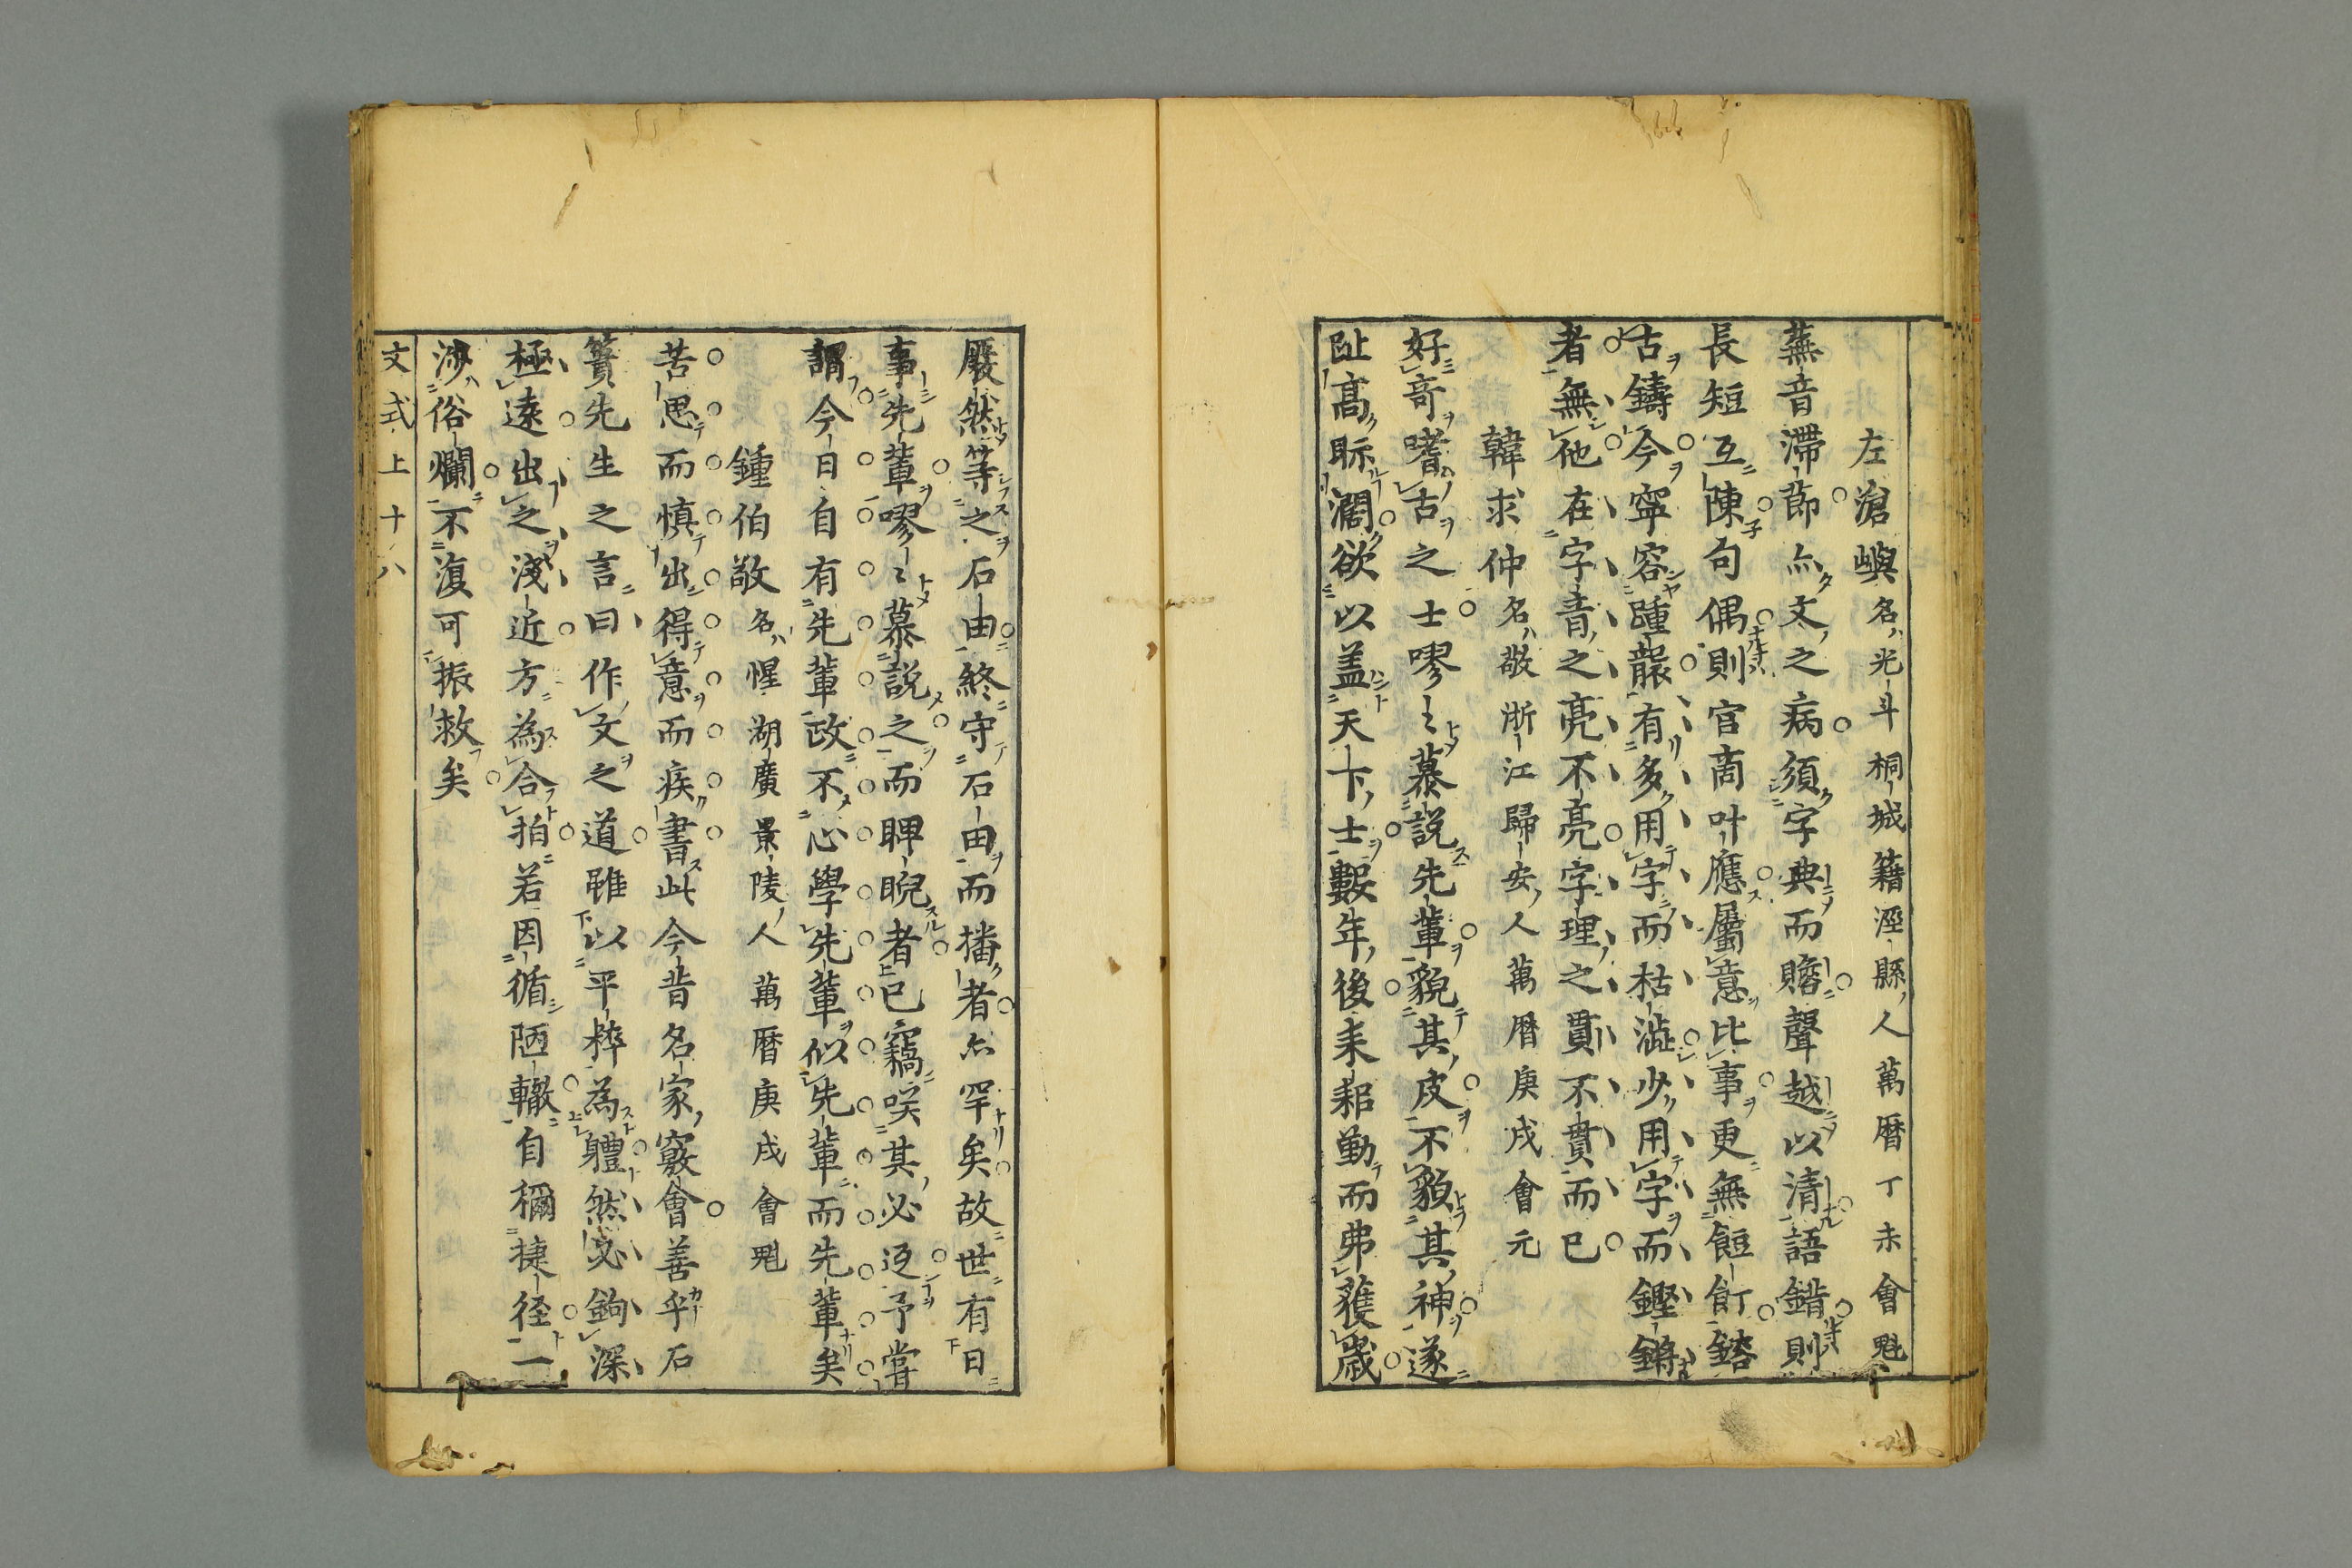 左滄嶼名光斗桐城籍涇縣人萬曆丁未會魁
蕪音滞莭亦文之病須字典而贍聲越以清語錯則
長短互陳句偶則宮商叶應屬意比事更無飣鎔
古鑄今寧容踵襲有多用字而枯澁少用字而鏗鏘
者無他在字音之亮不亮字理之貫不貫而已
韓求仲名敬浙江歸安人萬曆庚戌會元
好竒嗜古之士嘐〻慕説先輩貌其皮不貌其神遂
趾高眎濶欲以盖天下士數年後耒耜勤而弗獲歲
廢然等之石田終守石田而播者亦罕矣故世有日
事先輩嘐〻慕説之而睥睨者已竊咲其必返予嘗
謂今日自有先輩政不心學先輩似先輩而先輩矣
鍾伯敬名惺湖廣景陵人萬曆庚戌會魁
苦思而慎出得意而疾書此今昔名家竅會善乎石
簣先生之言曰作文之道雖以平粹為軆然必鉤深
極遠出之淺近方為合拍若因循陋轍自穪捷径一
渉俗爛不復可振救矣
文式上 十八